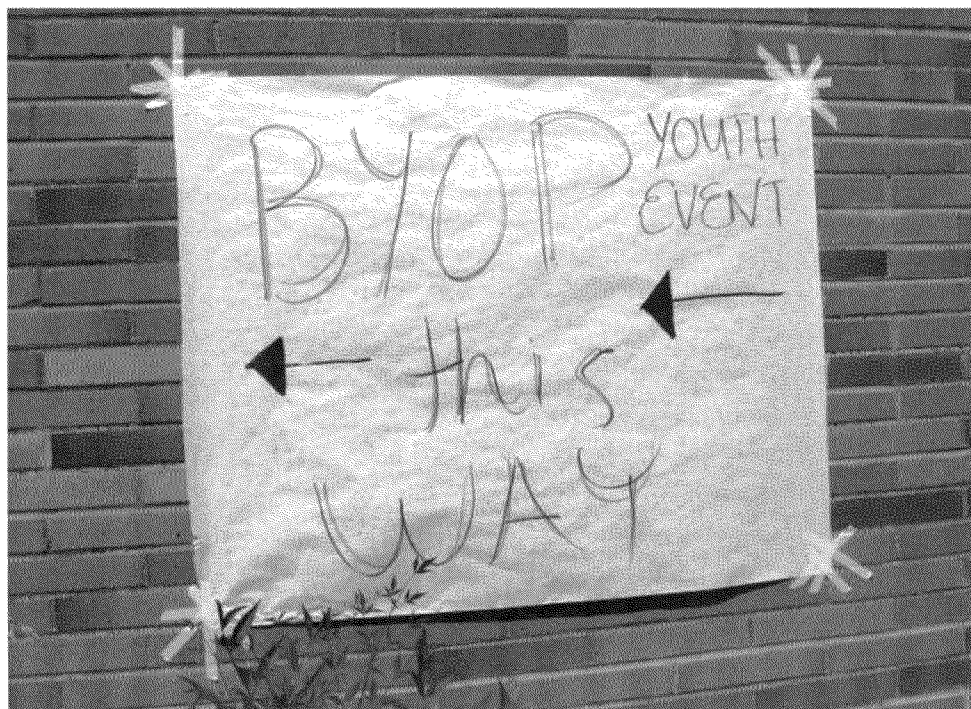 BYOP YOUTH
EVENT
this
WAY